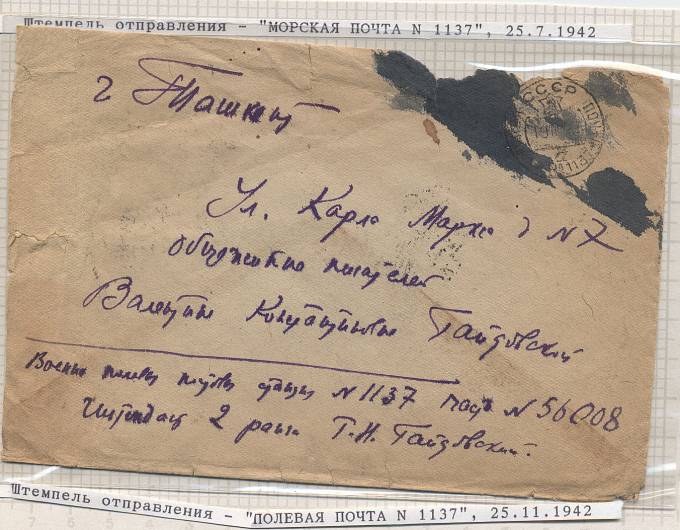 Штемпель отправления - "МОРСКАЯ ПОЧТА N 1137", 25.7.1942
СССР
г Ташкент
Ул. Карла Маркса д N 7
общежитие писателей
Валентине Константиновне Гайдовский
Военно полевая почтовая станция N 1137 часть N 56008
Интендант 2 ранга Г.Н. Гайдовский.
Штемпель отправления - "ПОЛЕВАЯ ПОЧТА N 1137", 25.11.1942